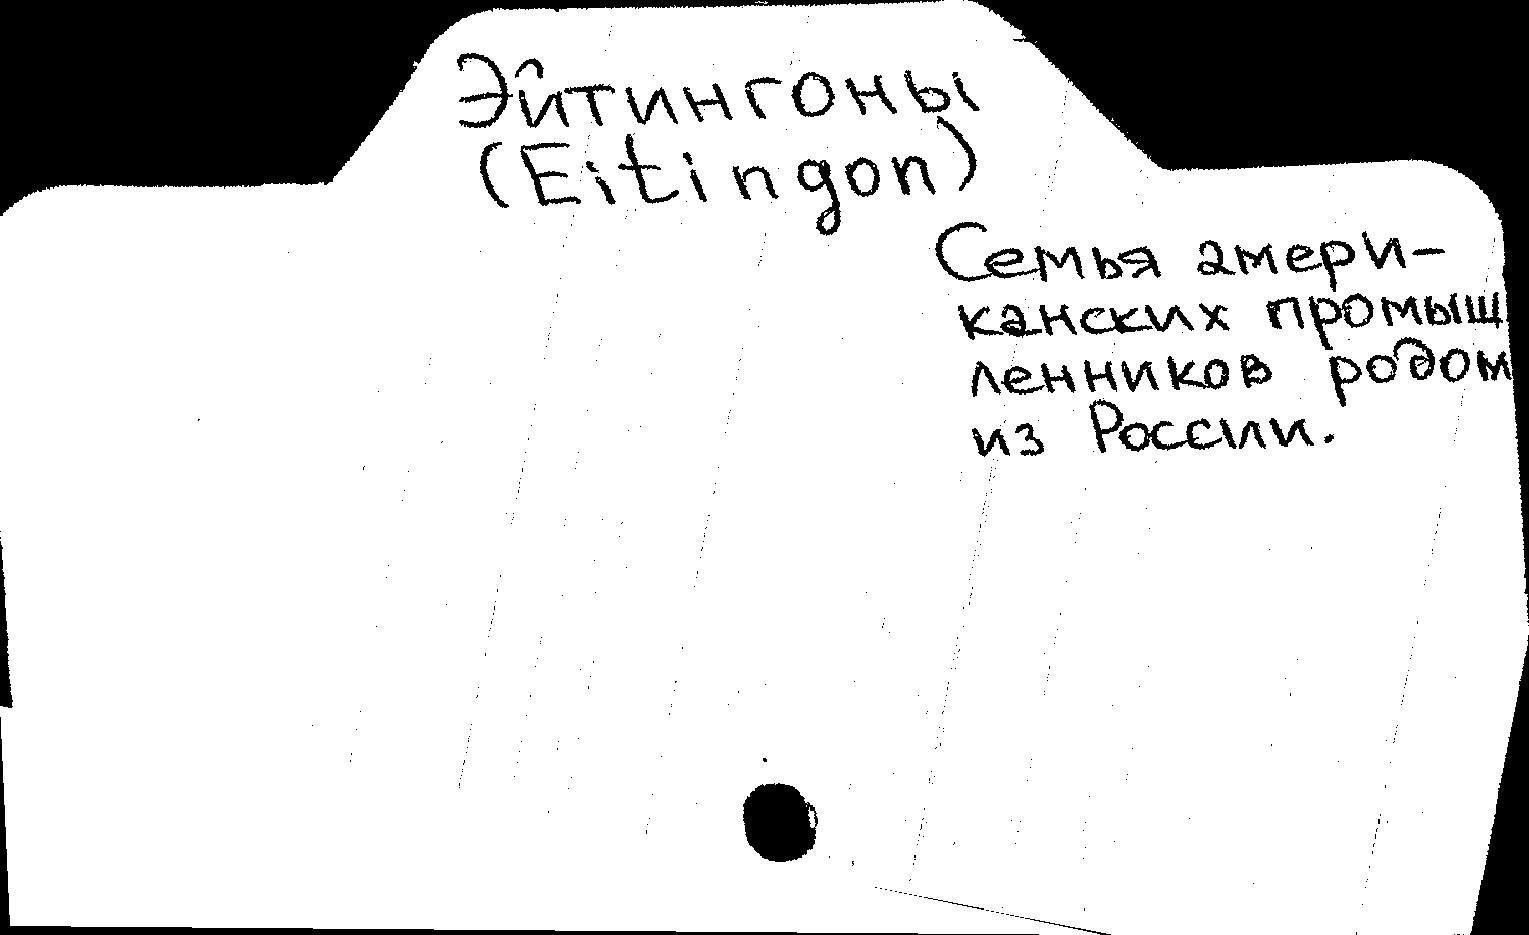 Эйтингоны
(Eitingon)
Семья амери-
канских промыш
ленников родом
из России.